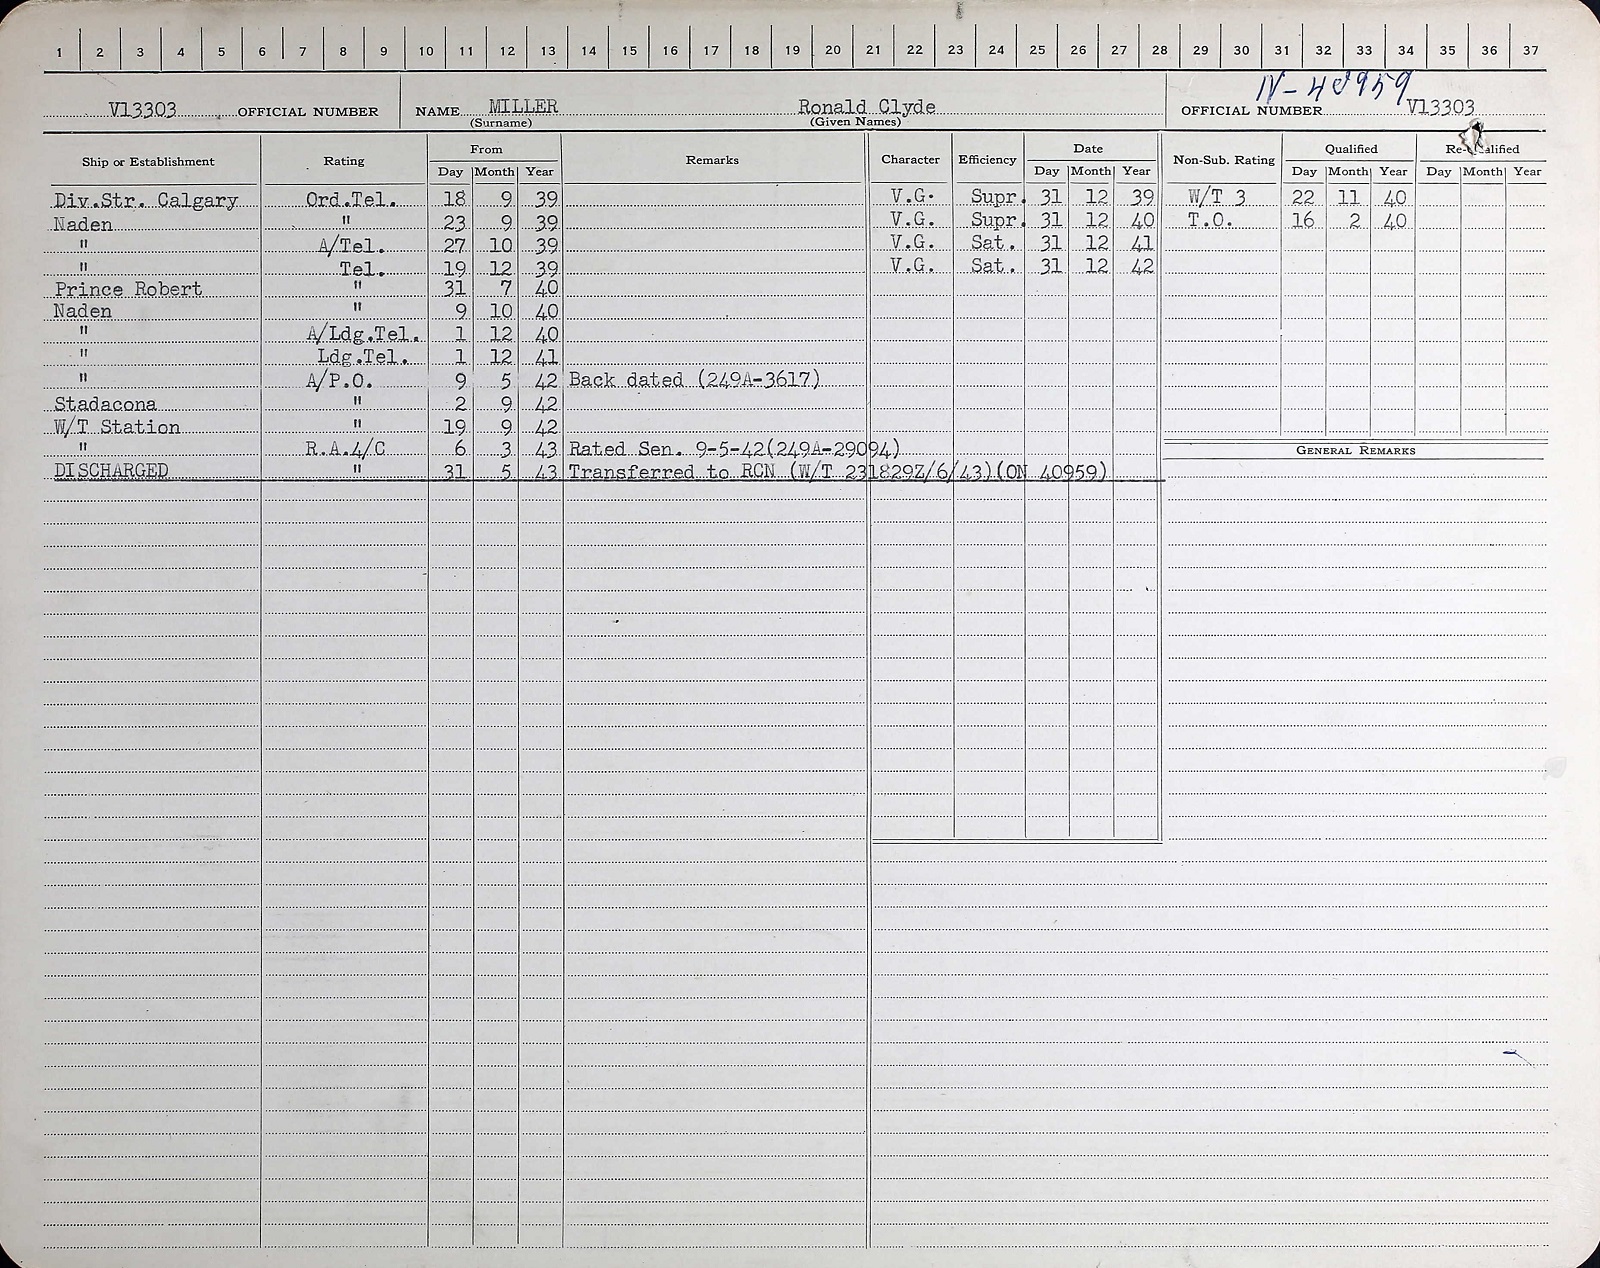 1 2 3 4 5 6 7 8 9 10 11 12 13 14 15 16 17 18 19 20 21 22 23 24 25 26 27 28 29 30 31 32 33 34 35 36 37
N-40959
V13303 OFFICIAL NUMBER NAME MILLER Ronald Clyde OFFICIAL NUMBER V13303
(Surname) (Given Names)
Ship or Establishment Rating From Remarks Character Efficiency Date Non-Sub. Rating Qualified Re-Qualified
Day Month Year Day Month Year Day Month Year Day Month Year
Div.Str. Calgary Ord.Tel. 18 9 39 V.G. Supr. 31 12 39 W/T 3 22 11 40
Naden " 23 9 39 V.G. Supr. 31 12 40 T.O. 16 2 40
" A/Tel. 27 10 39 V.G. Sat. 31 12 41
" Tel. 19 12 39 V.G. Sat. 31 12 42
Prince Robert " 31 7 40
Naden " 9 10 40
" A/Ldg.Tel. 1 12 40
" Ldg.Tel. 1 12 41
" A/P.O. 9 5 42 Back dated (249A-3617)
Stadacona " 2 9 42
W/T Station " 19 9 42
" R.A.4/C 6 3 43 Rated Sen. 9-5-42(249A-29094)
GENERAL REMARKS
DISCHARGED " 31 5 43 Transferred to RCN (W/T 231829Z/6/43)(ON 40959)